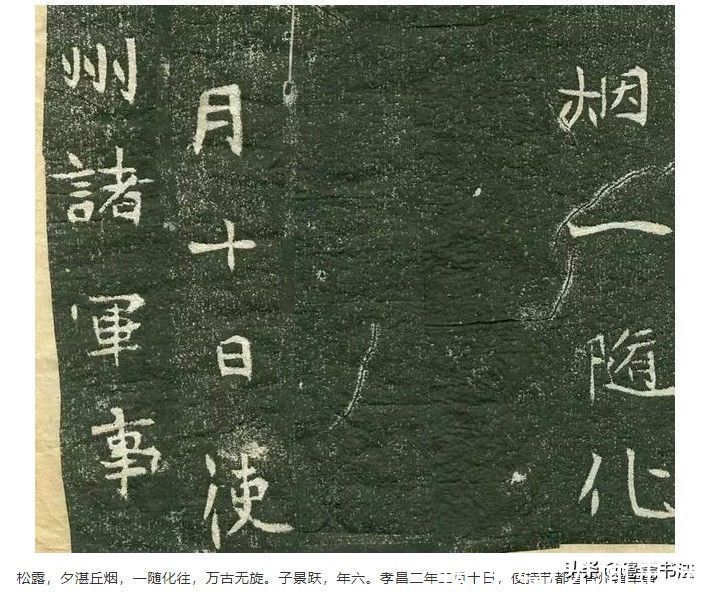 烟一随化
月十日使
州諸軍事
松露，夕湛丘烟，一随化往，万古无旋。子景跃，年六。孝昌二年二月十日，使持节都督